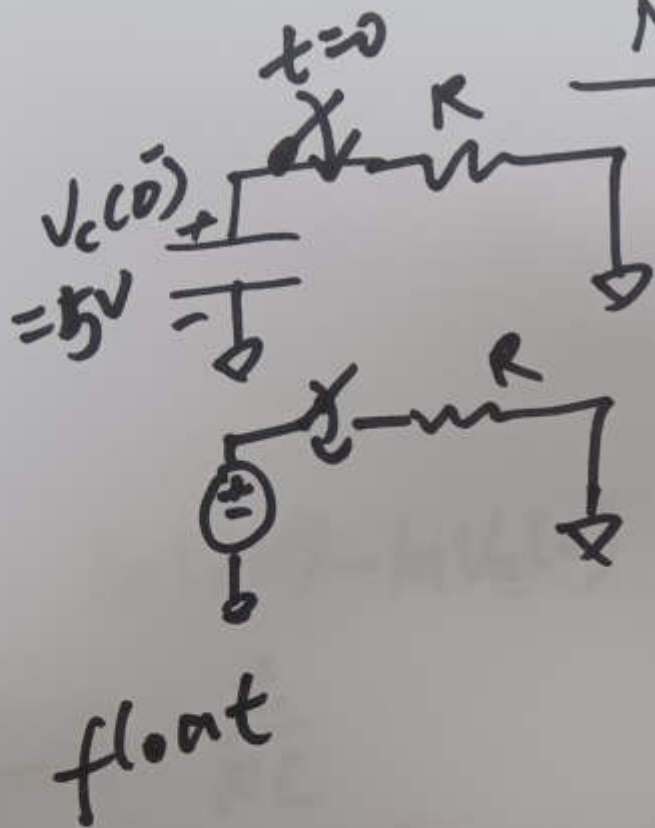 t=0
R
Vc(0⁻) +
=5V −
R
+
−
float